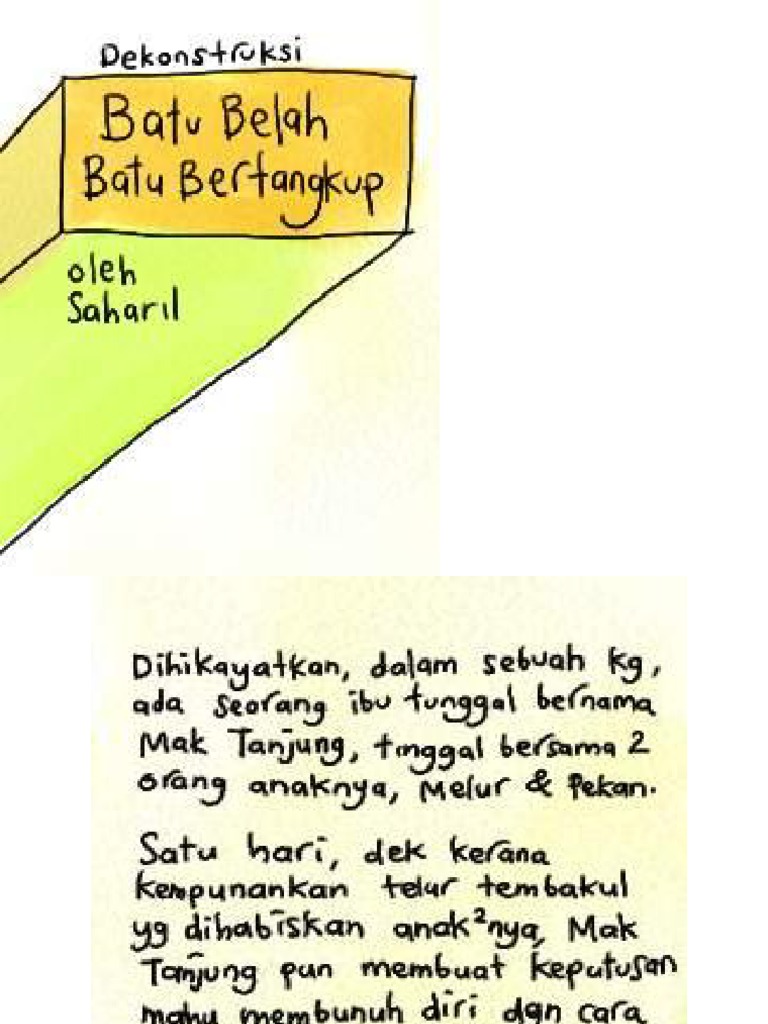 Dekonstruksi
Batu Belah
Batu Bertangkup
oleh
Saharil
Dihikayatkan, dalam sebuah kg,
ada seorang ibu tunggal bernama
Mak Tanjung, tinggal bersama 2
orang anaknya, Melur & Pekan.
Satu hari, dek kerana
kempunankan telur tembakul
yg dihabiskan anak²nya, Mak
Tanjung pun membuat keputusan
mahu membunuh diri dgn cara